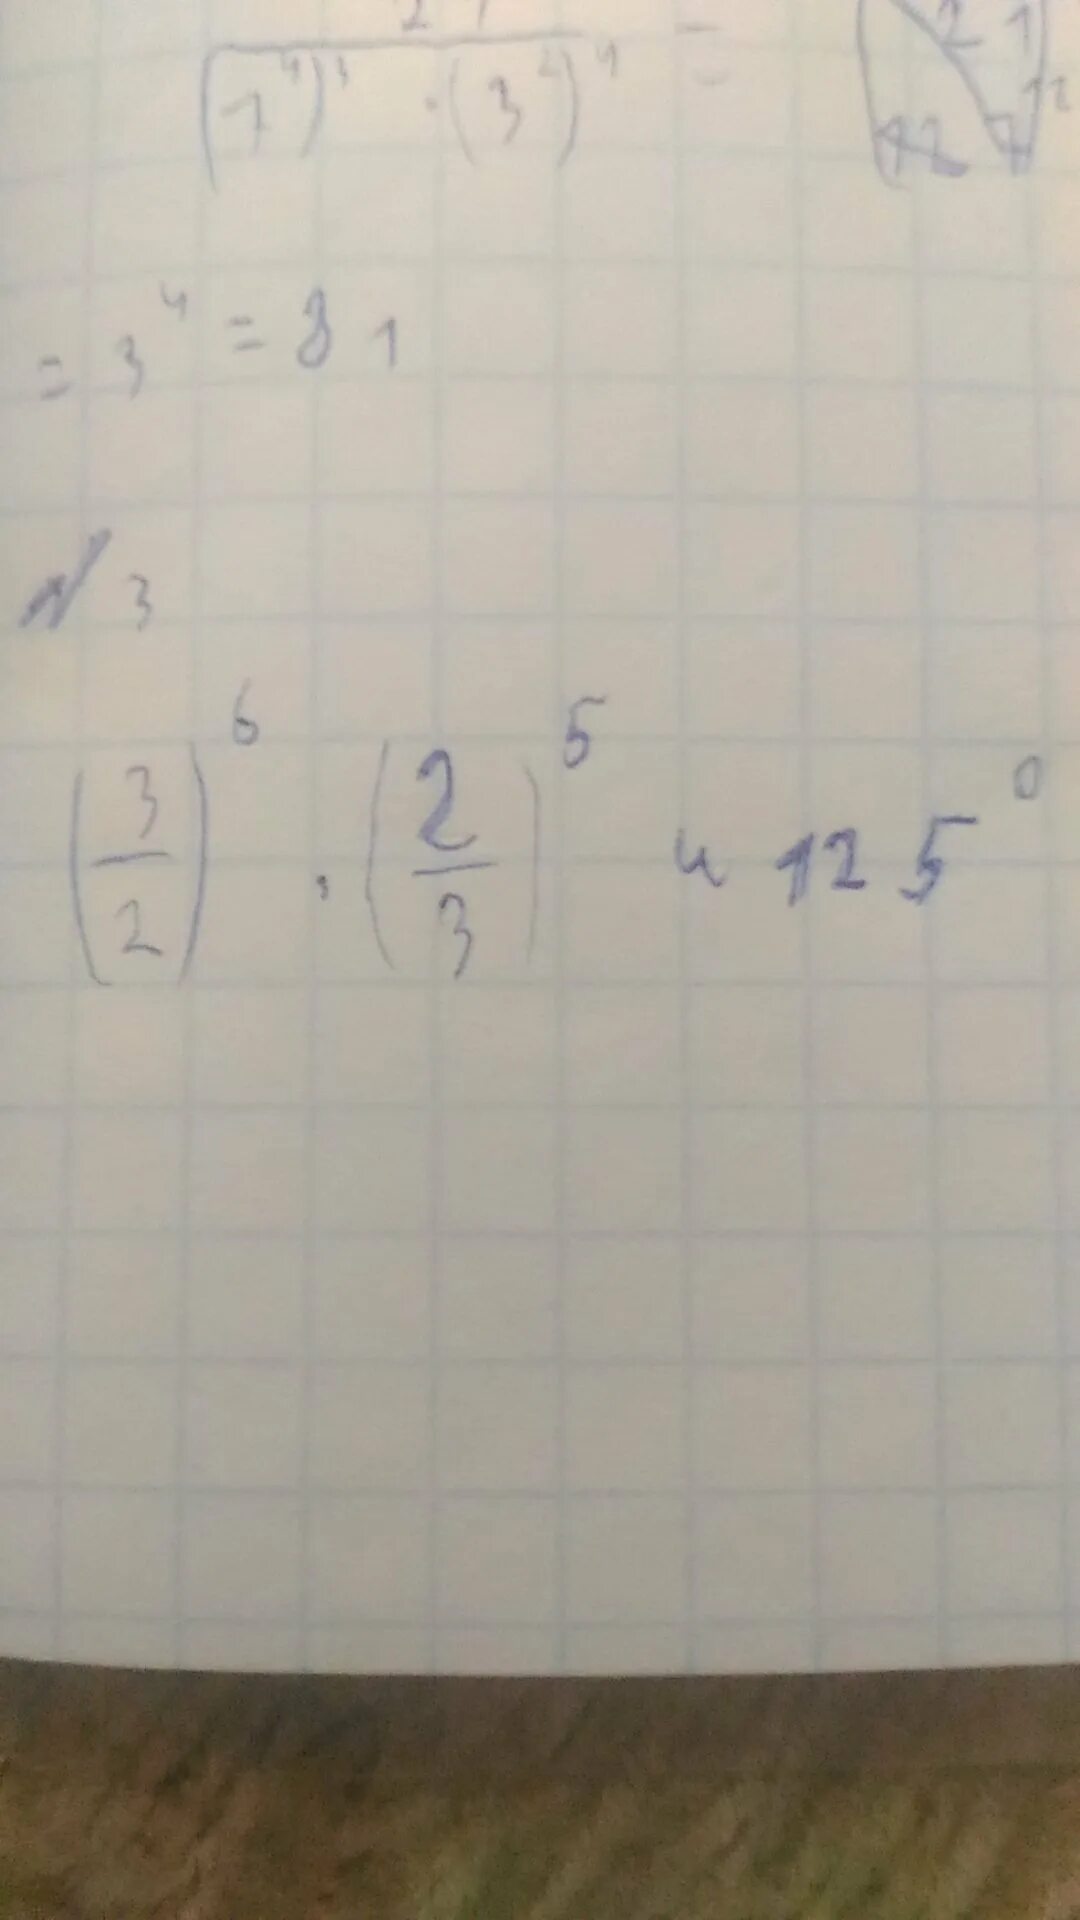 (7⁴)³ · (3²)⁴ =
= 3⁴ = 81
№ 3
(3/2)⁶ · (2/3)⁵ и 125⁰